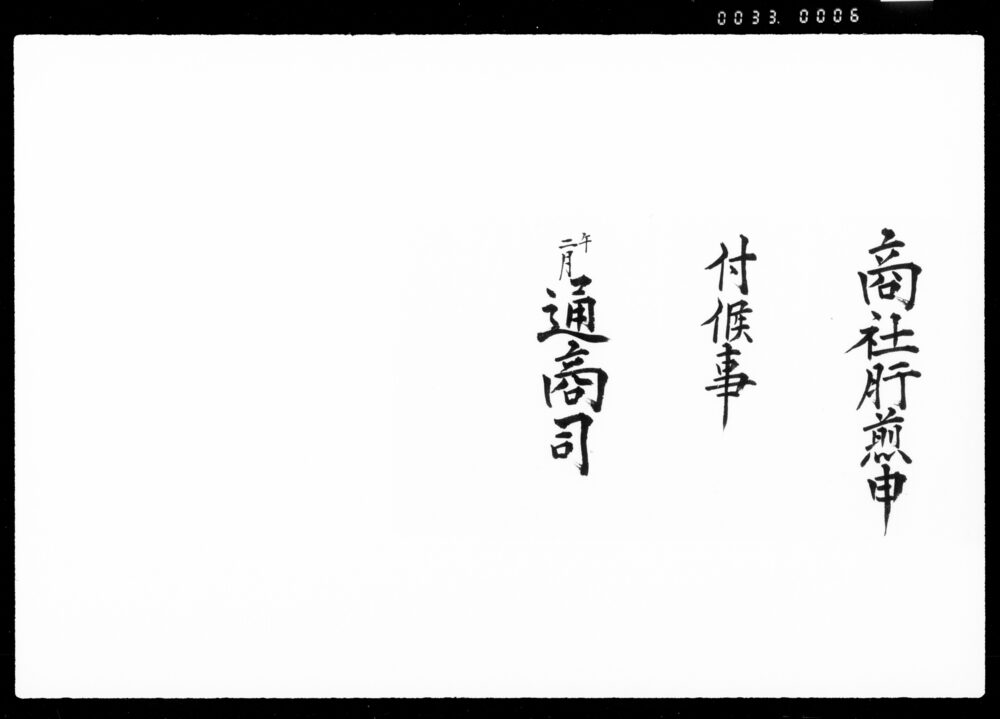 0033. 0006
商社肝煎申
付候事
午
二月
通商司